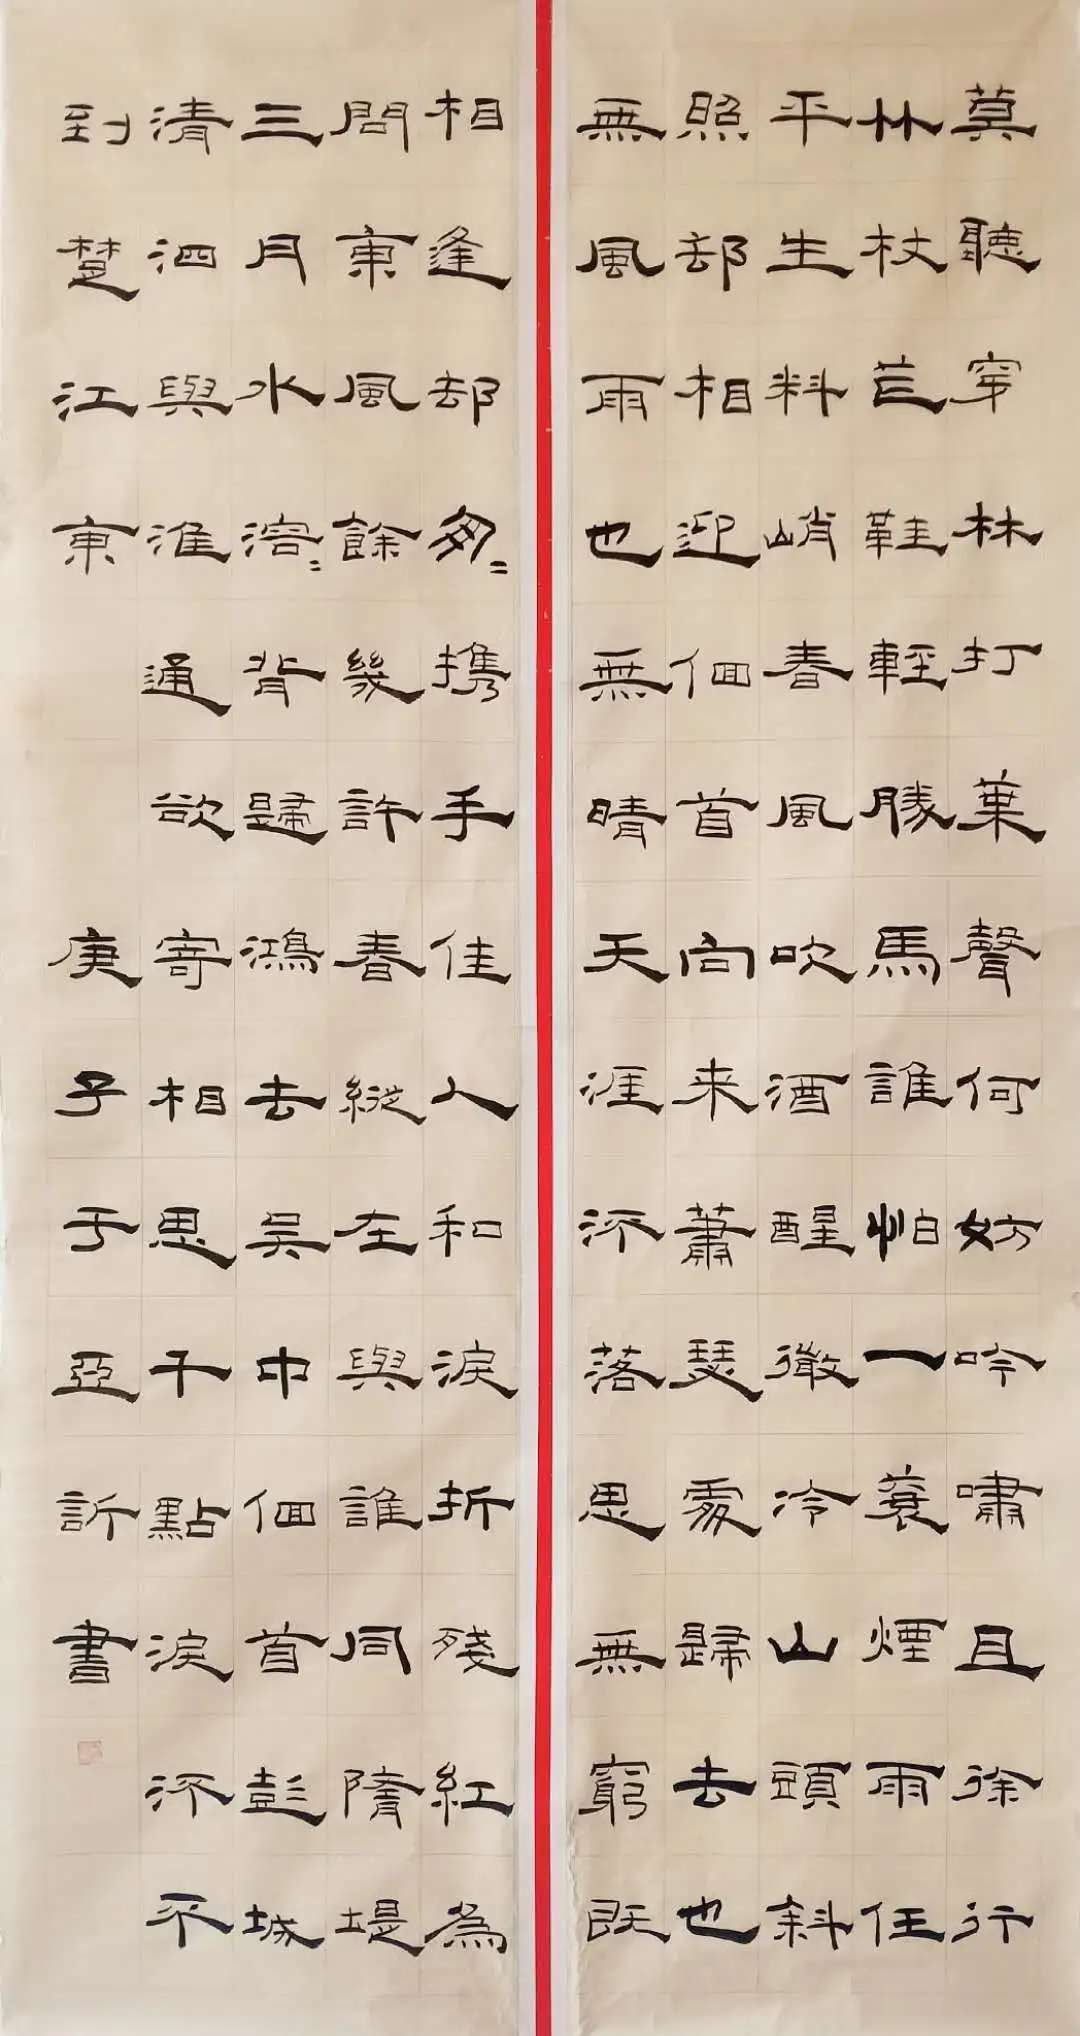 莫聽穿林打葉聲何妨吟嘯且徐行
竹杖芒鞋輕勝馬誰怕一蓑煙雨任
平生料峭春風吹酒醒微冷山頭斜
照却相迎佪首向来蕭瑟處歸去也
無風雨也無晴天涯流落思無窮既
相逢却匆〻携手佳人和淚折殘紅為
問東風餘幾許春縱在與誰同隋堤
三月水溶〻背歸鴻去吳中佪首彭城
清泗與淮通欲寄相思千點淚流不
到楚江東 庚子于亞訢書